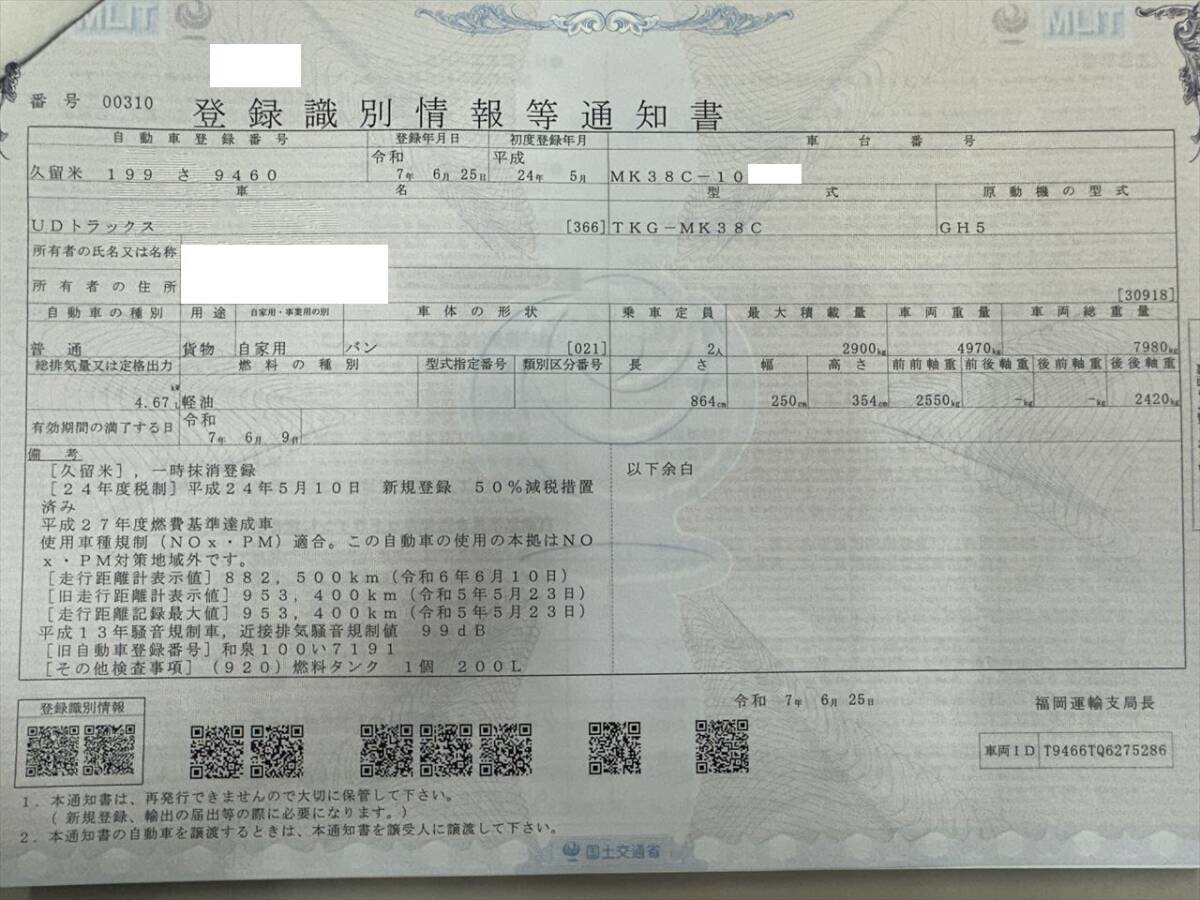 MLIT
MLIT
番号 00310 登録識別情報等通知書
自動車登録番号 登録年月日 初度登録年月 車台番号
久留米 199 さ 9460 令和 7年 6月 25日 平成 24年 5月 MK38C-10
車名 型式 原動機の型式
UDトラックス [366] TKG-MK38C GH5
所有者の氏名又は名称
所有者の住所 [30918]
自動車の種別 用途 自家用・事業用の別 車体の形状 乗車定員 最大積載量 車両重量 車両総重量
普通 貨物 自家用 バン [021] 2人 2900kg 4970kg 7980kg
総排気量又は定格出力 燃料の種別 型式指定番号 類別区分番号 長さ 幅 高さ 前前軸重 前後軸重 後前軸重 後後軸重
kW 4.67L 軽油 864cm 250cm 354cm 2550kg -kg -kg 2420kg
有効期間の満了する日 令和 7年 6月 9日
備考
[久留米],一時抹消登録 以下余白
[24年度税制]平成24年5月10日 新規登録 50%減税措置
済み
平成27年度燃費基準達成車
使用車種規制(NOx・PM)適合。この自動車の使用の本拠はNO
x・PM対策地域外です。
[走行距離計表示値]882,500km(令和6年6月10日)
[旧走行距離計表示値]953,400km(令和5年5月23日)
[走行距離記録最大値]953,400km(令和5年5月23日)
平成13年騒音規制車,近接排気騒音規制値 99dB
[旧自動車登録番号]和泉100い7191
[その他検査事項](920)燃料タンク 1個 200L
令和 7年 6月 25日 福岡運輸支局長
登録識別情報
車両ID T9466TQ6275286
1.本通知書は、再発行できませんので大切に保管して下さい。
(新規登録、輸出の届出等の際に必要になります。)
2.本通知書の自動車を譲渡するときは、本通知書を譲受人に譲渡して下さい。
国土交通省